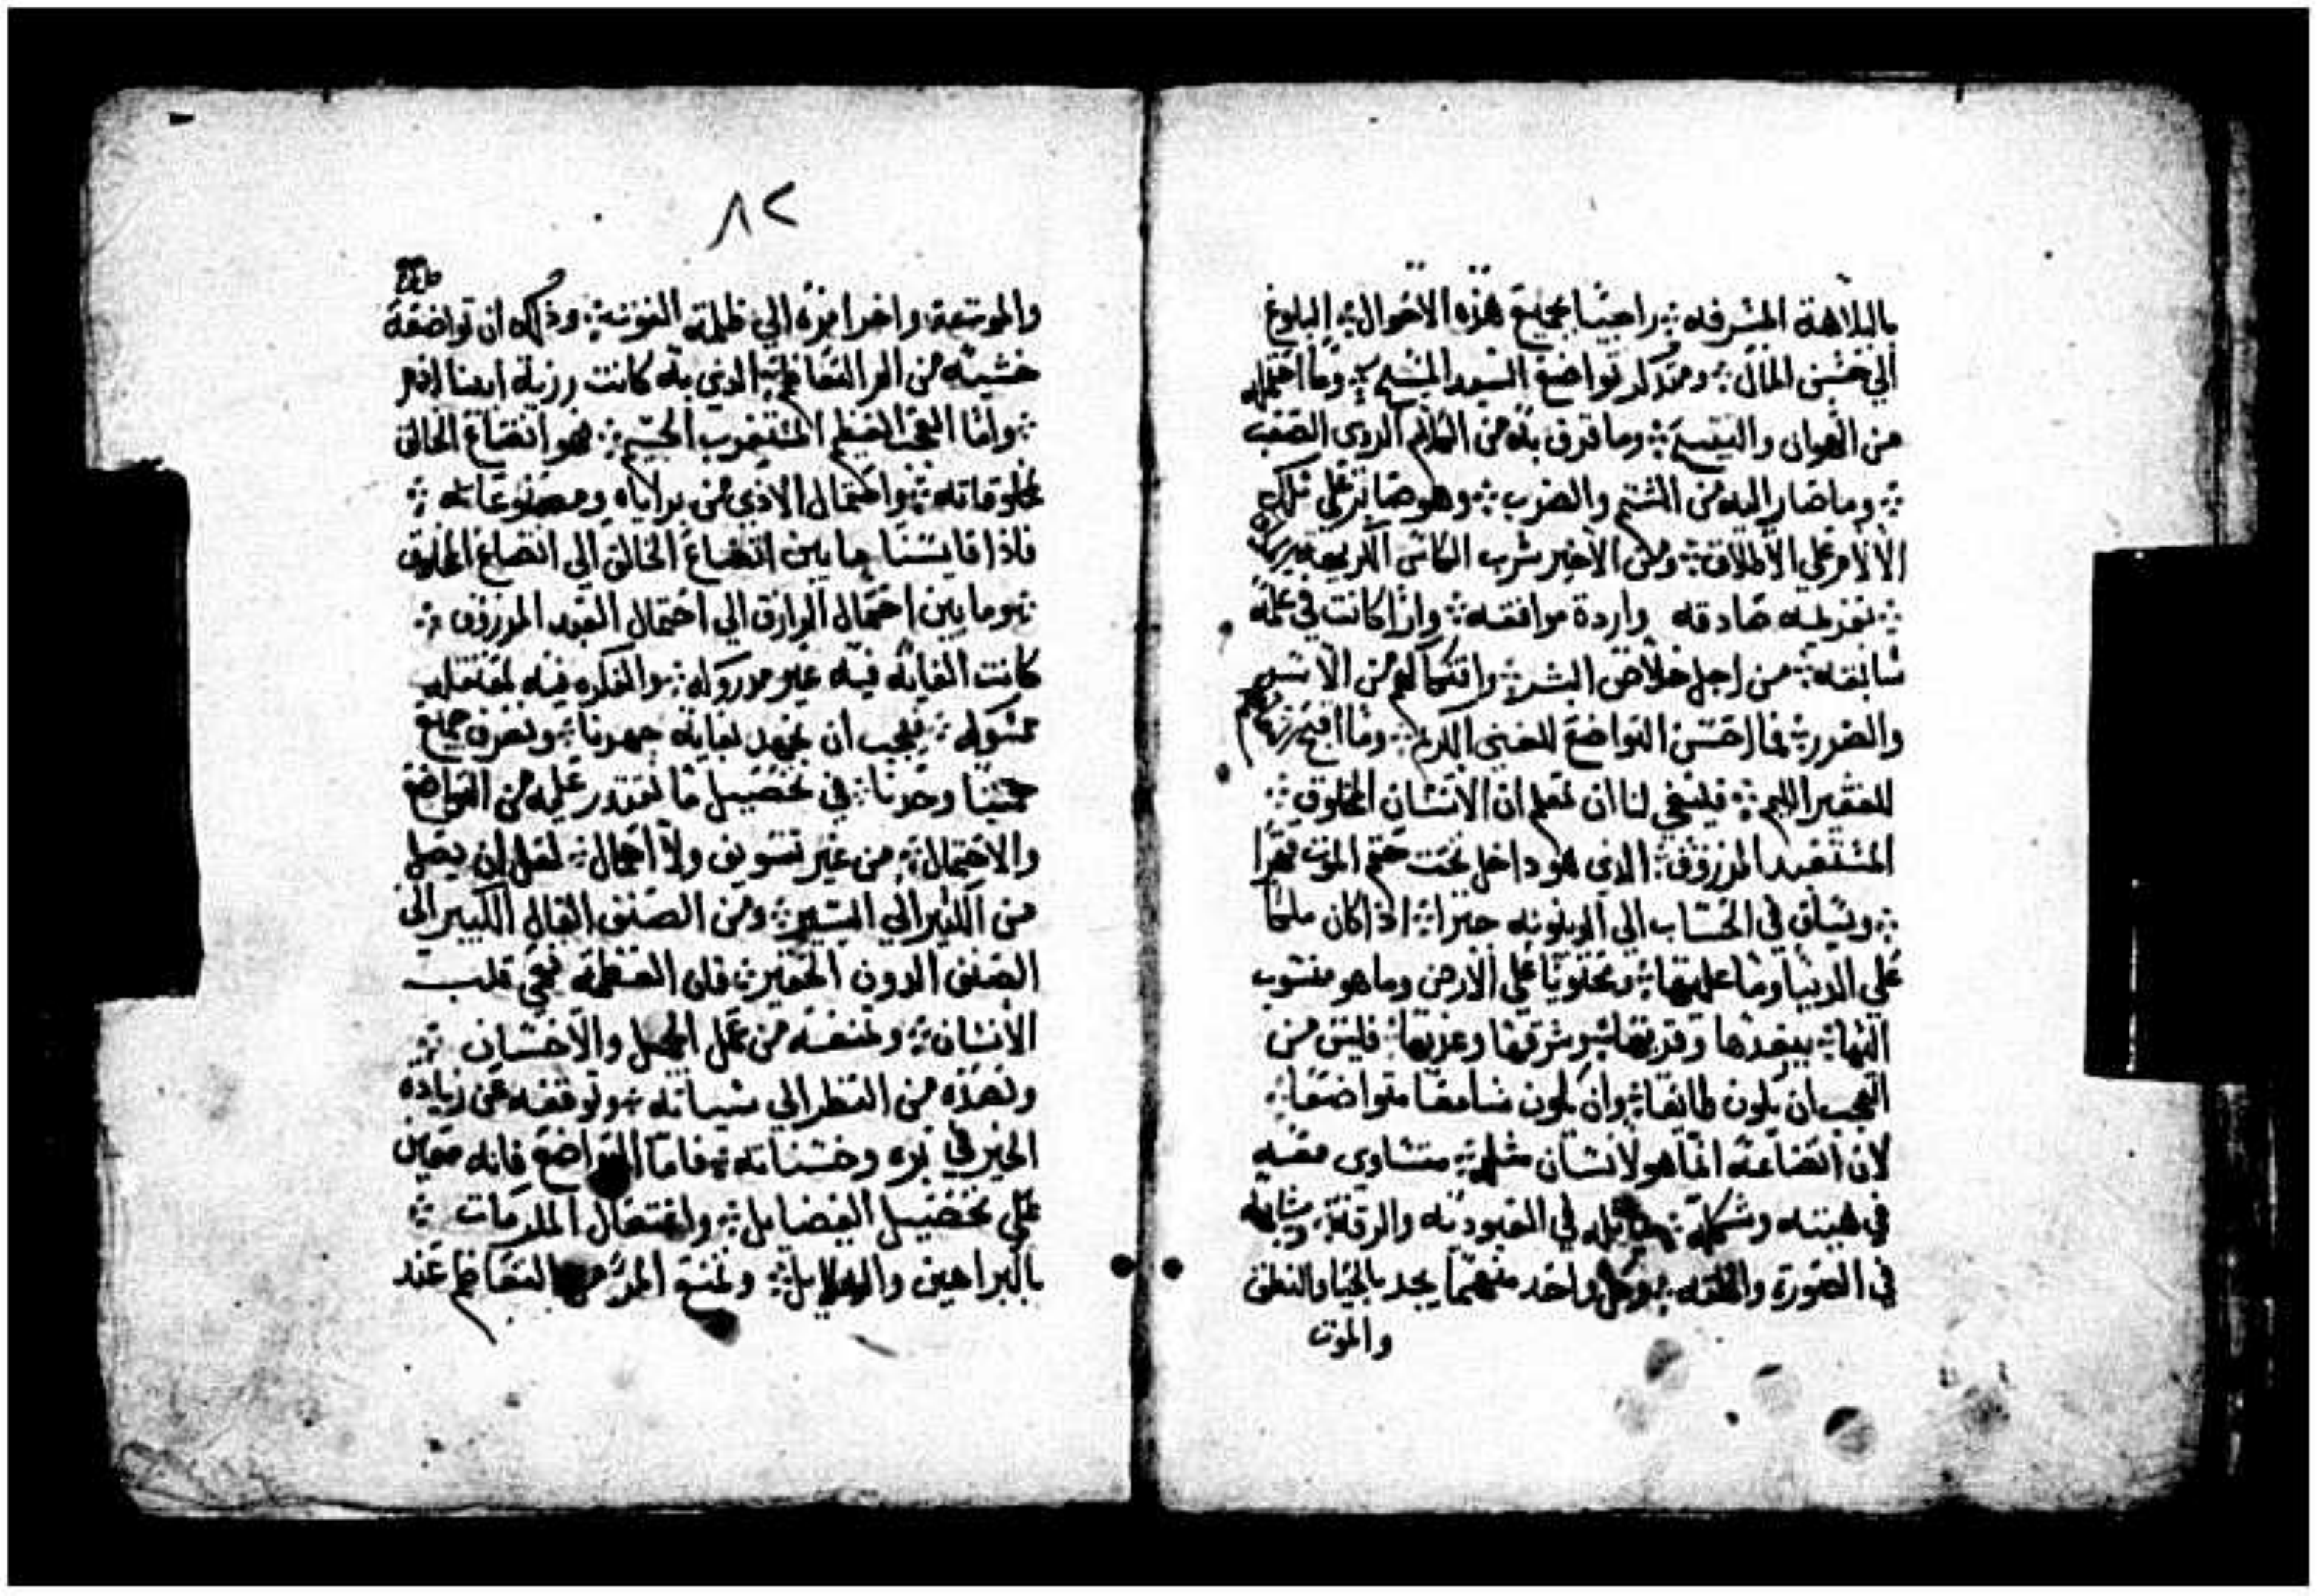 بالبلاهة المشرفه ❊ راجيًا بجميع هذه الاحوال ❊ البلوغ
الي حسن المال ❊ ومتذكر تواضع السيد المسيح ❊ وما احتمله
من الهوان ❊ وما قرف به من الكلام الردي الصعب
❊ وما صار اليه من الشتم والضرب ❊ وهو صابر علي تلك
الالام علي الاطلاق ❊ ومن الاخير شرب الكاس الكريهه
❊ صادقه واردة موافقه ❊ واذا كانت في علمه
سابقه ❊ من اجل خلاص البشر ❊ وافتكاكهم من الاسر
والضرر ❊ فما احسن التواضع للغني الكريم ❊ وما اقبح
للفقير الليم ❊ فينبغي لنا ان نعلم ان الانسان المخلوق ❊
المستعبد المرزوق ❊ الذي هو داخل تحت حتم الموت قهرا
❊ ويساق في الحساب الي الدينونه جبرا ❊ اذا كان ملكا
علي الدنيا وما عليها ❊ ومحتويا علي الارض وما هو منسوب
اليها ❊ ببعدها وقربها ❊ وشرقها وغربها ❊ فليس من
العجب ان يكون طايعا ❊ وان يكون سامعا متواضعا ❊
لان اتضاعه انما هو لانسان مثله ❊ متساوى معه
في هيئته وشكله ❊ في العبوديه والرقه ❊
في الصورة والخلقه ❊ وكل واحد منهما يحد بالحياة والنطق
والموت
٨٢
والموت واخرا به الي ظلمة ❊ وذلك ان تواضعه
خشية من الم التعاظم ❊ الذي به كانت رزية ابينا ادم
❊ واما العجب العظيم المستغرب الجسيم ❊ فهو اتضاع الخالق
لمخلوقاته ❊ واحتمال الاذي من براياه ومصنوعاته ❊
فاذا قايسنا ما بين اتضاع الخالق الي اتضاع المخلوق
❊ وما بين احتمال الرازق الي احتمال العبد المرزوق ❊
كانت الغايه فيه غير مدروكه ❊ والفكره فيه
❊ فيجب ان نجهد لغاية جهدنا ❊ ونصرف جميع
همتنا وحدنا ❊ في تحصيل ما نقتدر عليه من التواضع
والاحتمال ❊ من غير تسويف ولا اهمال ❊ لعل ان نصل
من الكثير الي اليسير ❊ ومن الصنف العال الكبير الي
الصنف الدون الحقير ❊ فان العظمه تعمي قلب
الانسان ❊ وتمنعه من عمل الجميل والاحسان ❊
وتصده من النظر الي سياته ❊ وتوقفه عن زياده
الخير في بره وحسناته ❊ فاما التواضع فانه معين
علي تحصيل الفضايل ❊ وافتعال المكرمات ❊
بالبراهين والدلايل ❊ وتمنع المرء من التعاظم عند